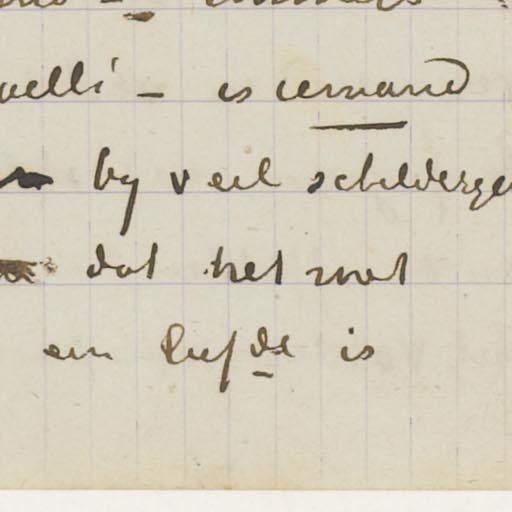 velli – is iemand
by veel schilderge
dat het met
een liefde is